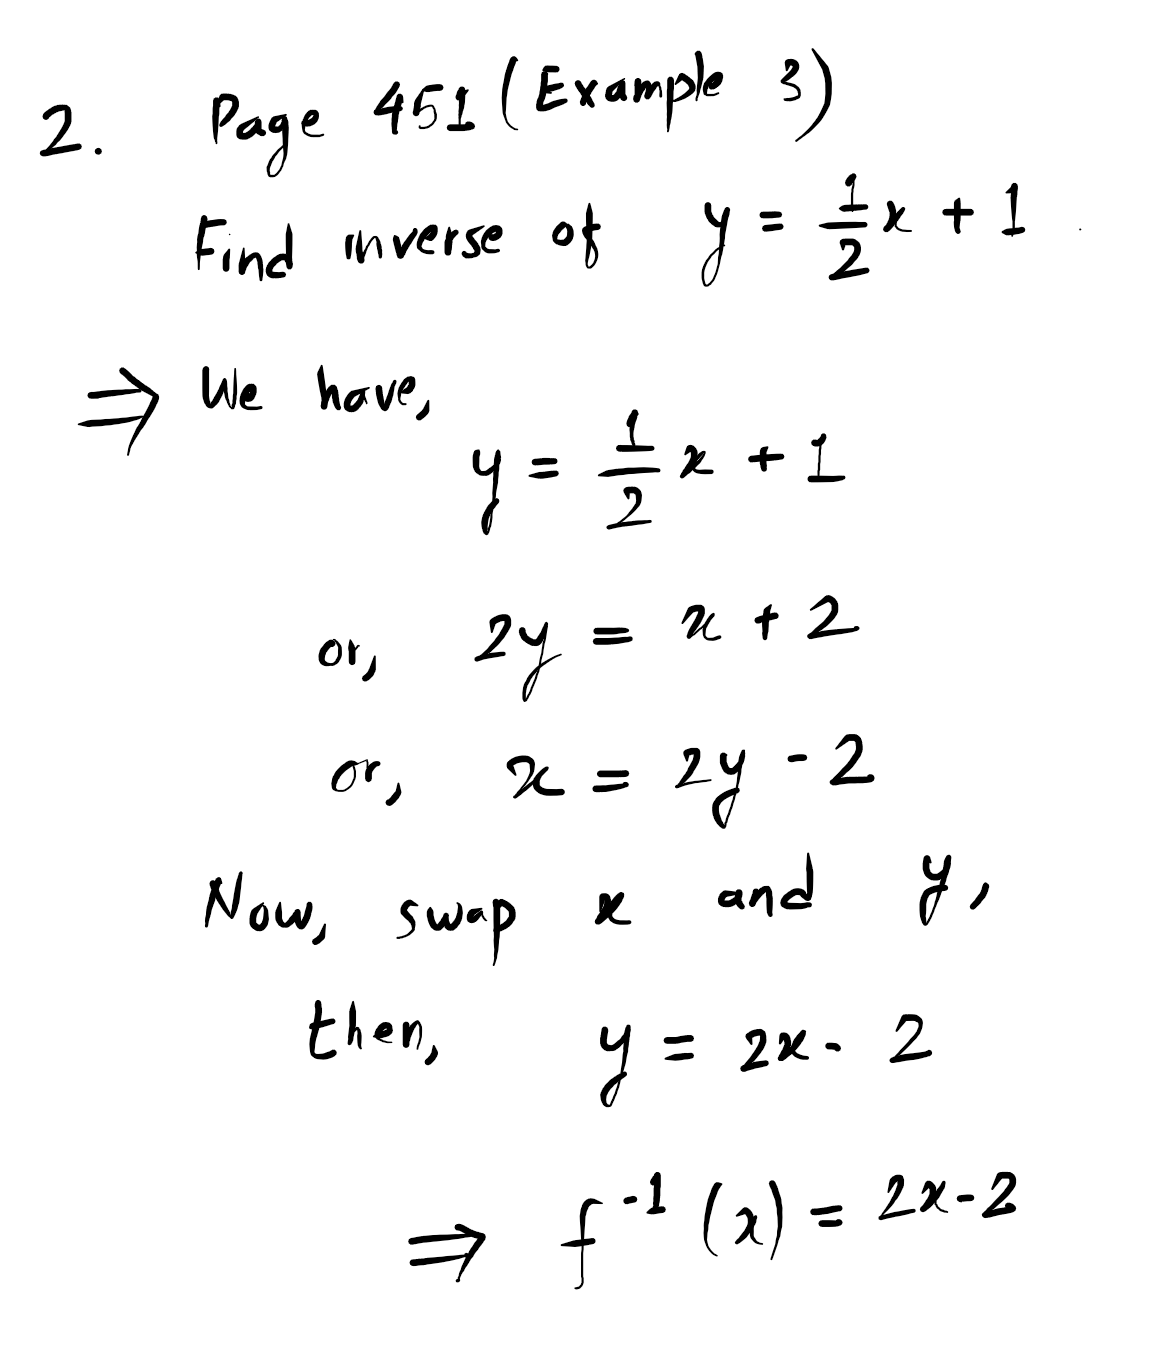 2. Page 451 (Example 3)
Find inverse of y = 1/2 x + 1
⇒ We have,
y = 1/2 x + 1
or, 2y = x + 2
or, x = 2y - 2
Now, swap x and y,
then, y = 2x - 2
⇒ f⁻¹(x) = 2x-2